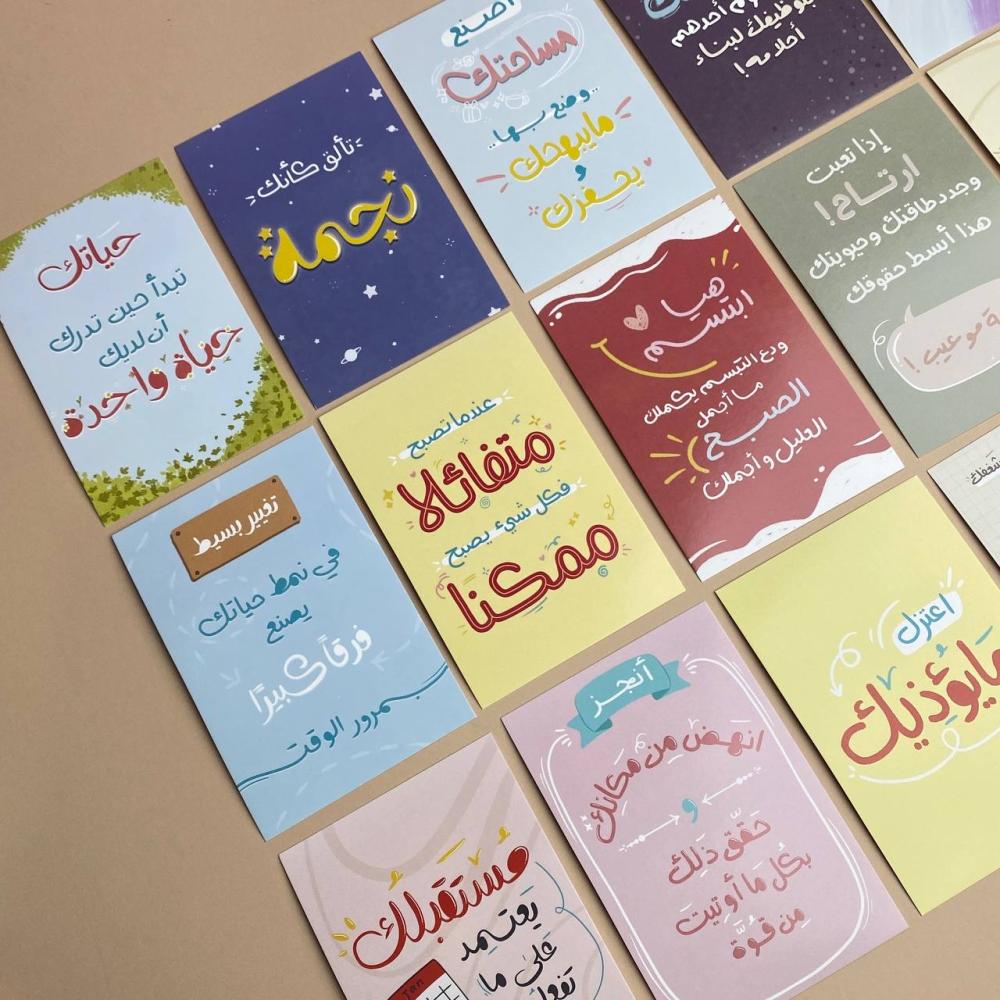 حياتك
تبدأ حين تدرك
أن لديك
حياة واحدة
تألق كأنك
نجمة
اصنع
مساحتك
وضع بها..
مايبهجك
و
يحفزك
أحدهم
بتوظيفك لبناء
أحلامه!
تغيير بسيط
في نمط حياتك
يصنع
فرقاً كبيرًا
بمرور الوقت
عندما تصبح
متفائلا
فكل شيئ يصبح
ممكنا
هيا
ابتسم
ودع التبسم يكملك
ما أجمل
الصبح
العليل وأجملك
إذا تعبت
ارتاح!
وجدد طاقتك وحيويتك
هذا أبسط حقوقك
مو عيب!
مستقبلك
يعتمد
على ما
Jan
أنجز
انهض من مكانك
و
حقق ذلك
بكل ما أوتيت
من قوة
اعتزل
مايؤذيك